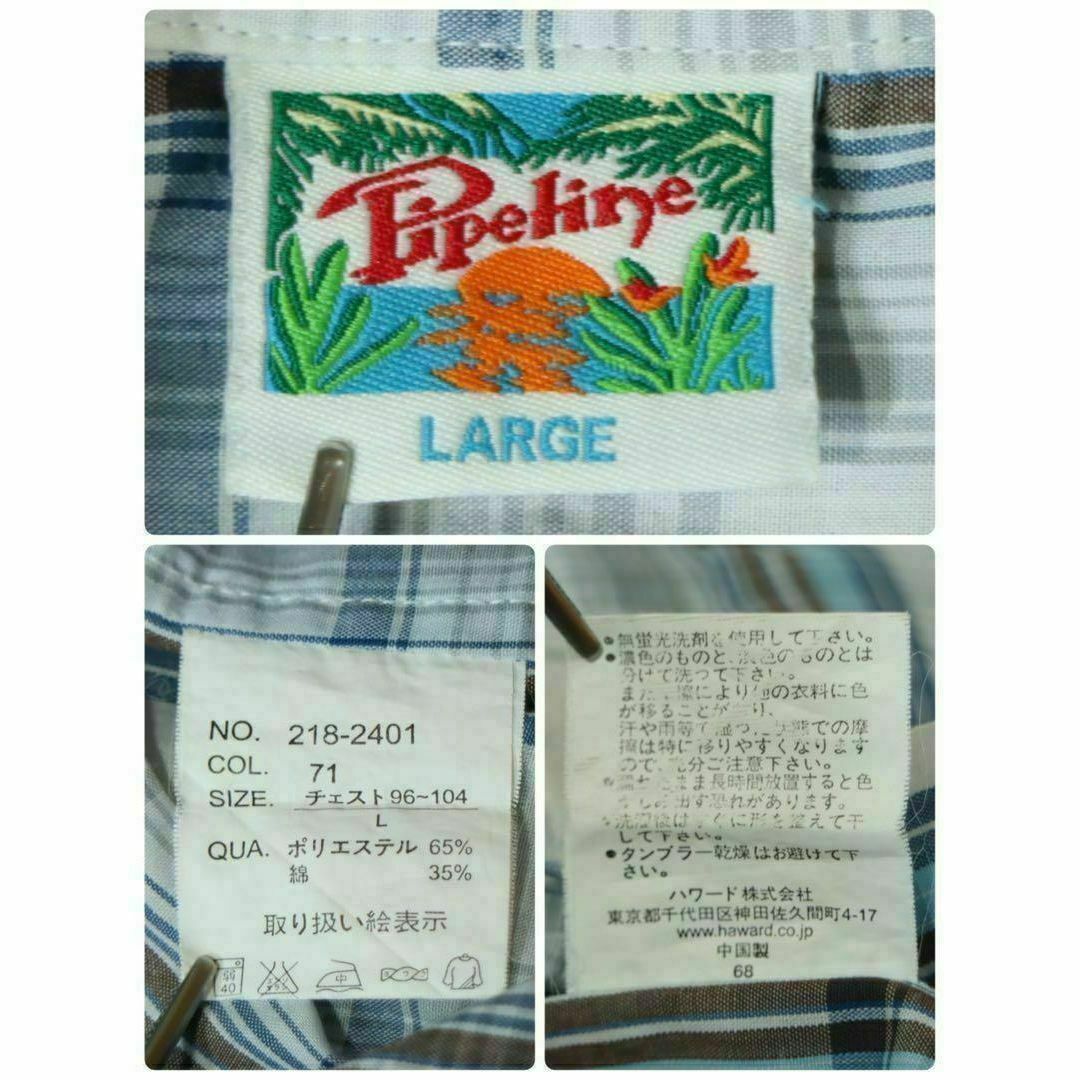 Pipeline
LARGE
NO. 218-2401
COL. 71
SIZE. チェスト96~104
L
QUA. ポリエステル 65%
綿 35%
取り扱い絵表示
40
中
●無蛍光洗剤を使用して下さい。
●濃色のものと、淡色のものとは
分けて洗って下さい。
また、摩擦により他の衣料に色
が移ることがあり、
汗や雨等で湿った状態での摩
擦は特に移りやすくなります
ので、充分ご注意下さい。
濡れたまま長時間放置すると色
がしみ出す恐れがあります。
洗濯後はすぐに形を整えて干
して下さい。
●タンブラー乾燥はお避けて下
さい。
ハワード株式会社
東京都千代田区神田佐久間町4-17
www.haward.co.jp
中国製
68